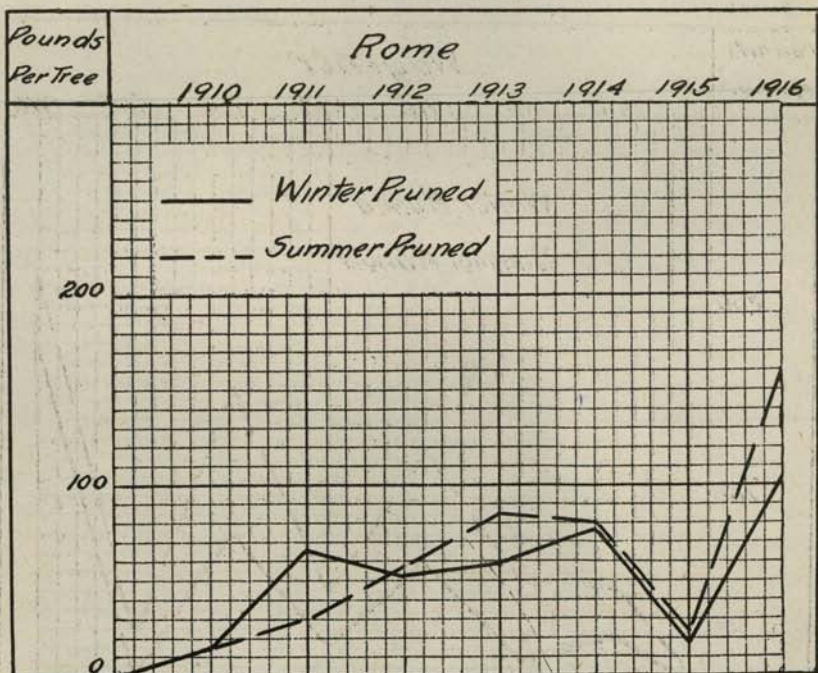 Pounds
Per Tree
Rome
1910 1911 1912 1913 1914 1915 1916
Winter Pruned
Summer Pruned
200
100
0